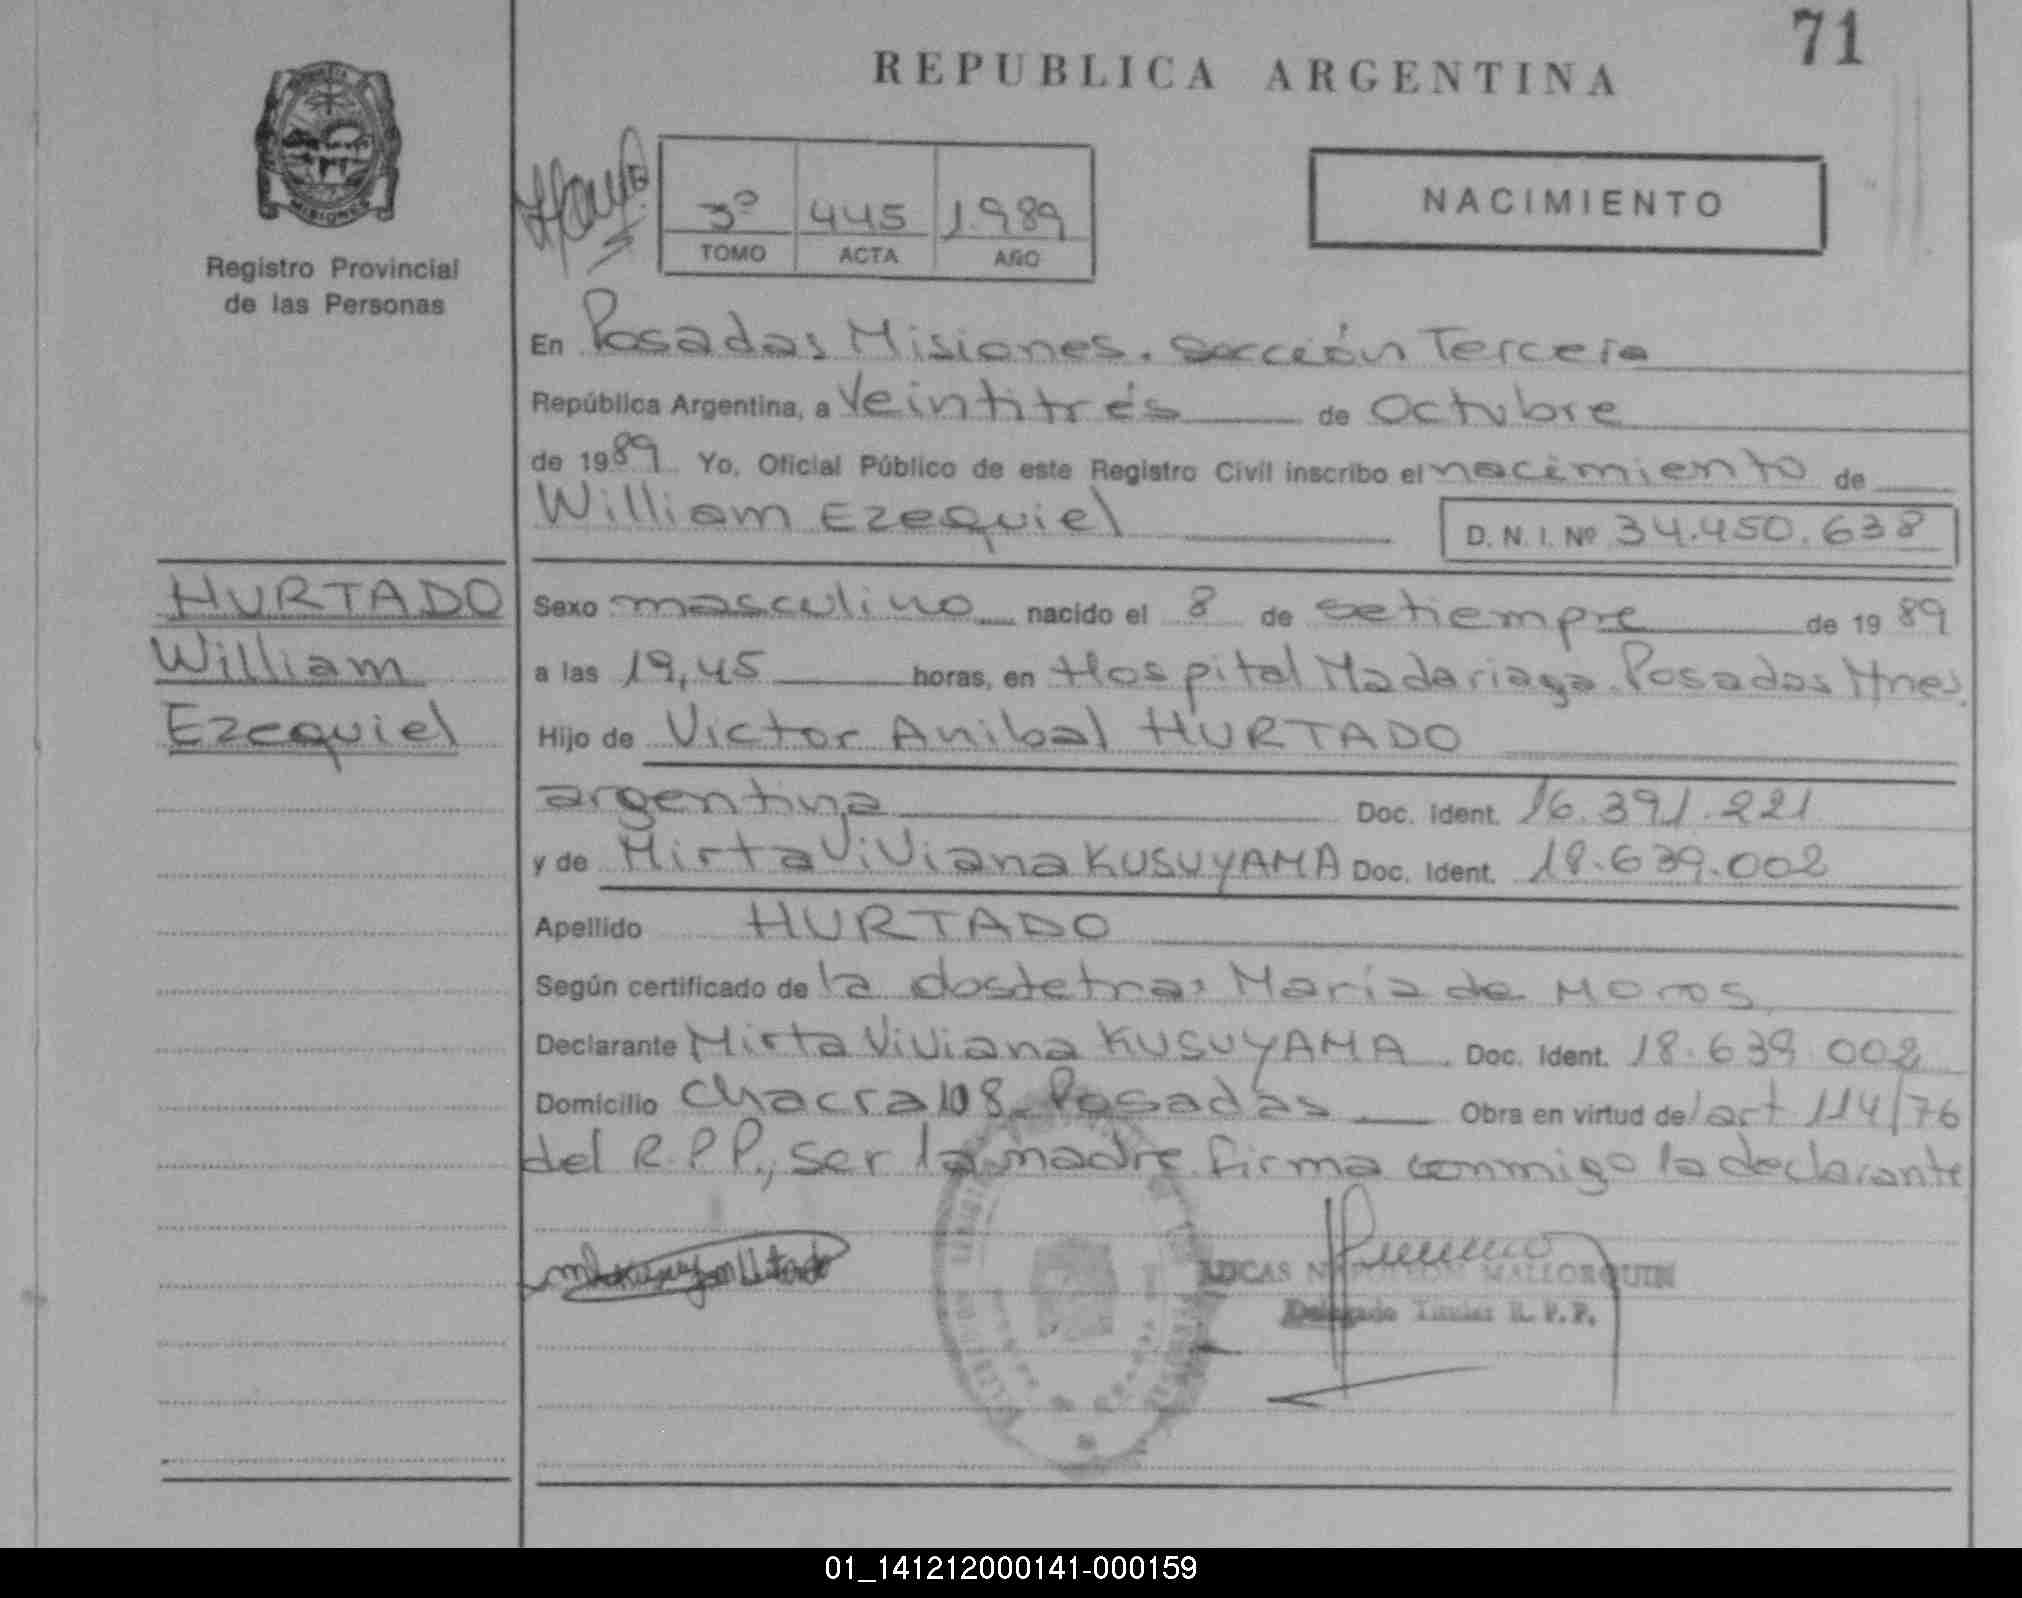 71
REPUBLICA ARGENTINA
NACIMIENTO
3º 445 1.989
TOMO ACTA AÑO
Registro Provincial
de las Personas
MISIONES
En Posadas Misiones. sección Tercera
República Argentina, a Veintitrés de Octubre
de 1989 Yo, Oficial Público de este Registro Civil inscribo el nacimiento de
William Ezequiel D. N. I. Nº 34.450.638
HURTADO
William
Ezequiel
Sexo masculino nacido el 8 de setiempre de 1989
a las 19,45 horas, en Hospital Madariaga. Posadas Mnes.
Hijo de Victor Anibal HURTADO
argentina Doc. Ident. 16.391.221
y de Mirta Viviana KUSUYAMA Doc. Ident. 18.639.002
Apellido HURTADO
Según certificado de la María de Moros
Declarante Mirta Viviana KUSUYAMA. Doc. Ident. 18.639.002
Domicilio Chacra 108. Posadas Obra en virtud del art 114/76
del R.P.P., ser la madre. firma conmigo la declarante
LUCAS NAPOLEON MALLORQUIN
Delegado Titular R. P. P.
01_141212000141-000159